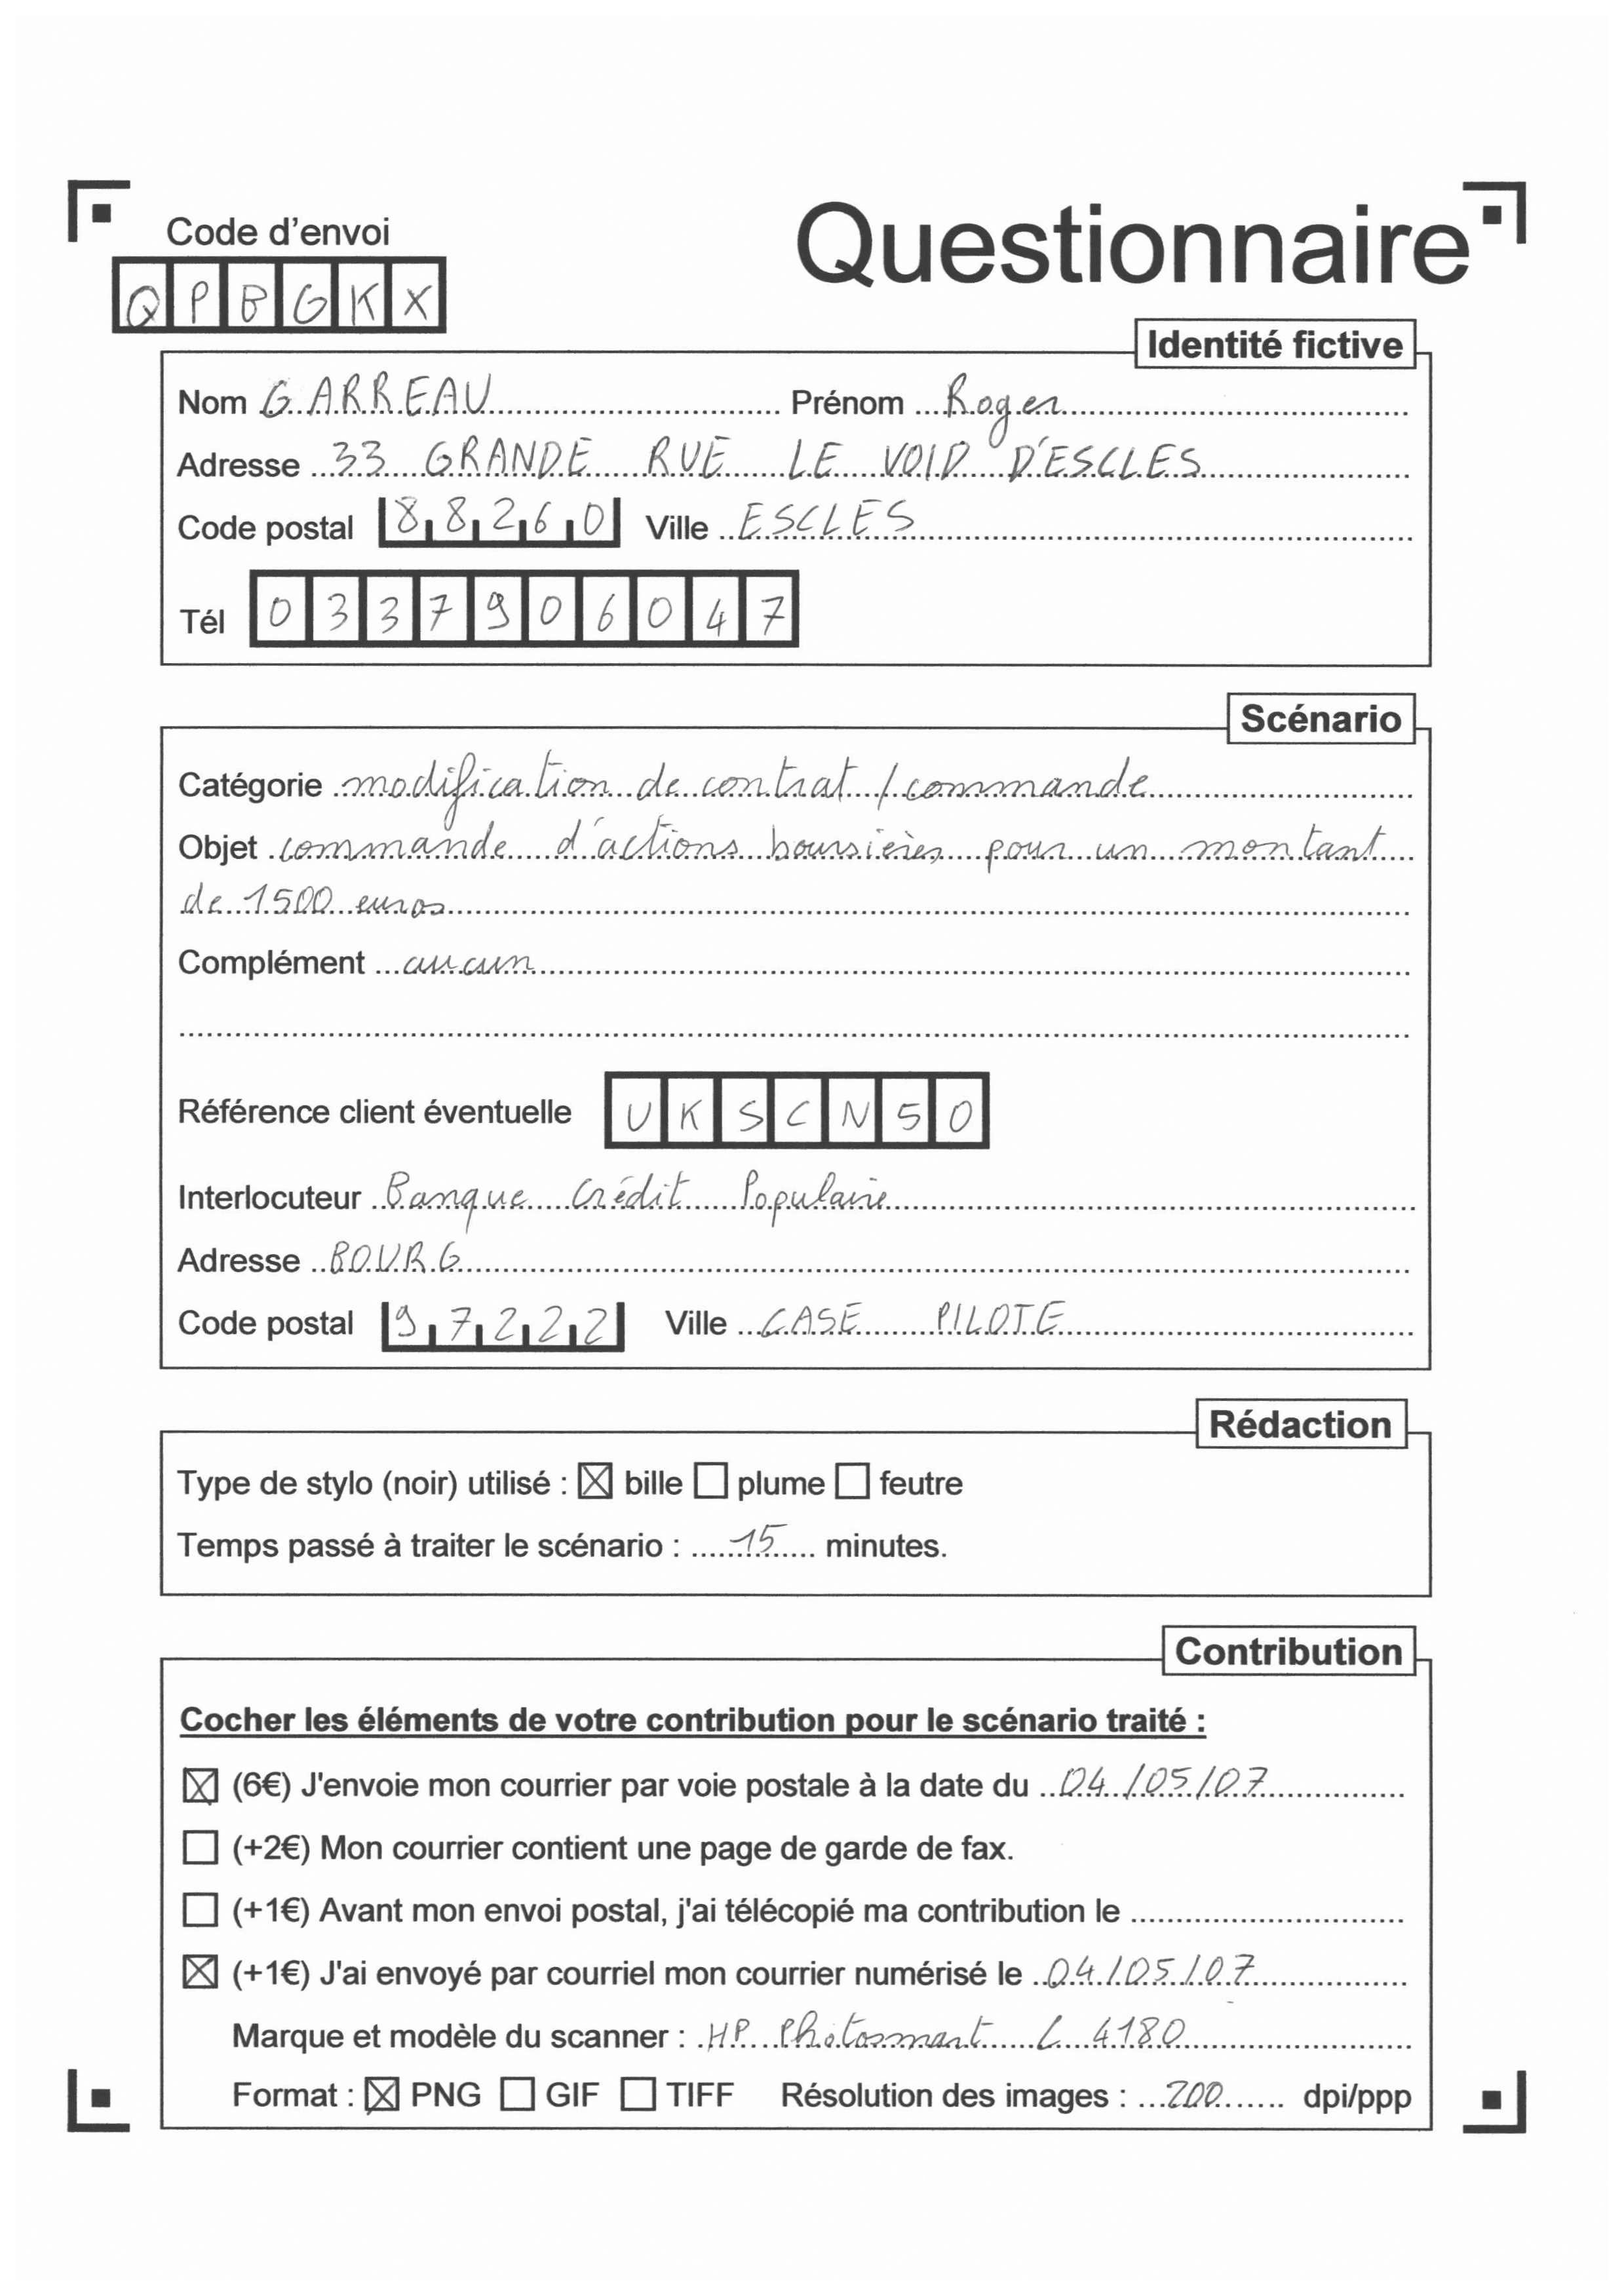 Code d'envoi
Questionnaire
QPBGKX
Identité fictive
Nom GARREAU Prénom Roger
Adresse 33 GRANDE RUE LE VOID D'ESCLES
Code postal 88260 Ville ESCLES
Tél 0337906047
Scénario
Catégorie modification de contrat / commande
Objet commande d'actions boursières pour un montant
de 1500 euros
Complément aucun
Référence client éventuelle UKSCN50
Interlocuteur Banque Crédit Populaire
Adresse BOURG
Code postal 97222 Ville CASE PILOTE
Rédaction
Type de stylo (noir) utilisé : ☒ bille ☐ plume ☐ feutre
Temps passé à traiter le scénario : 15 minutes.
Contribution
Cocher les éléments de votre contribution pour le scénario traité :
☒ (6€) J'envoie mon courrier par voie postale à la date du 04/05/07
☐ (+2€) Mon courrier contient une page de garde de fax.
☐ (+1€) Avant mon envoi postal, j'ai télécopié ma contribution le
☒ (+1€) J'ai envoyé par courriel mon courrier numérisé le 04/05/07
Marque et modèle du scanner : HP Photosmart C 4180
Format : ☒ PNG ☐ GIF ☐ TIFF Résolution des images : 200 dpi/ppp